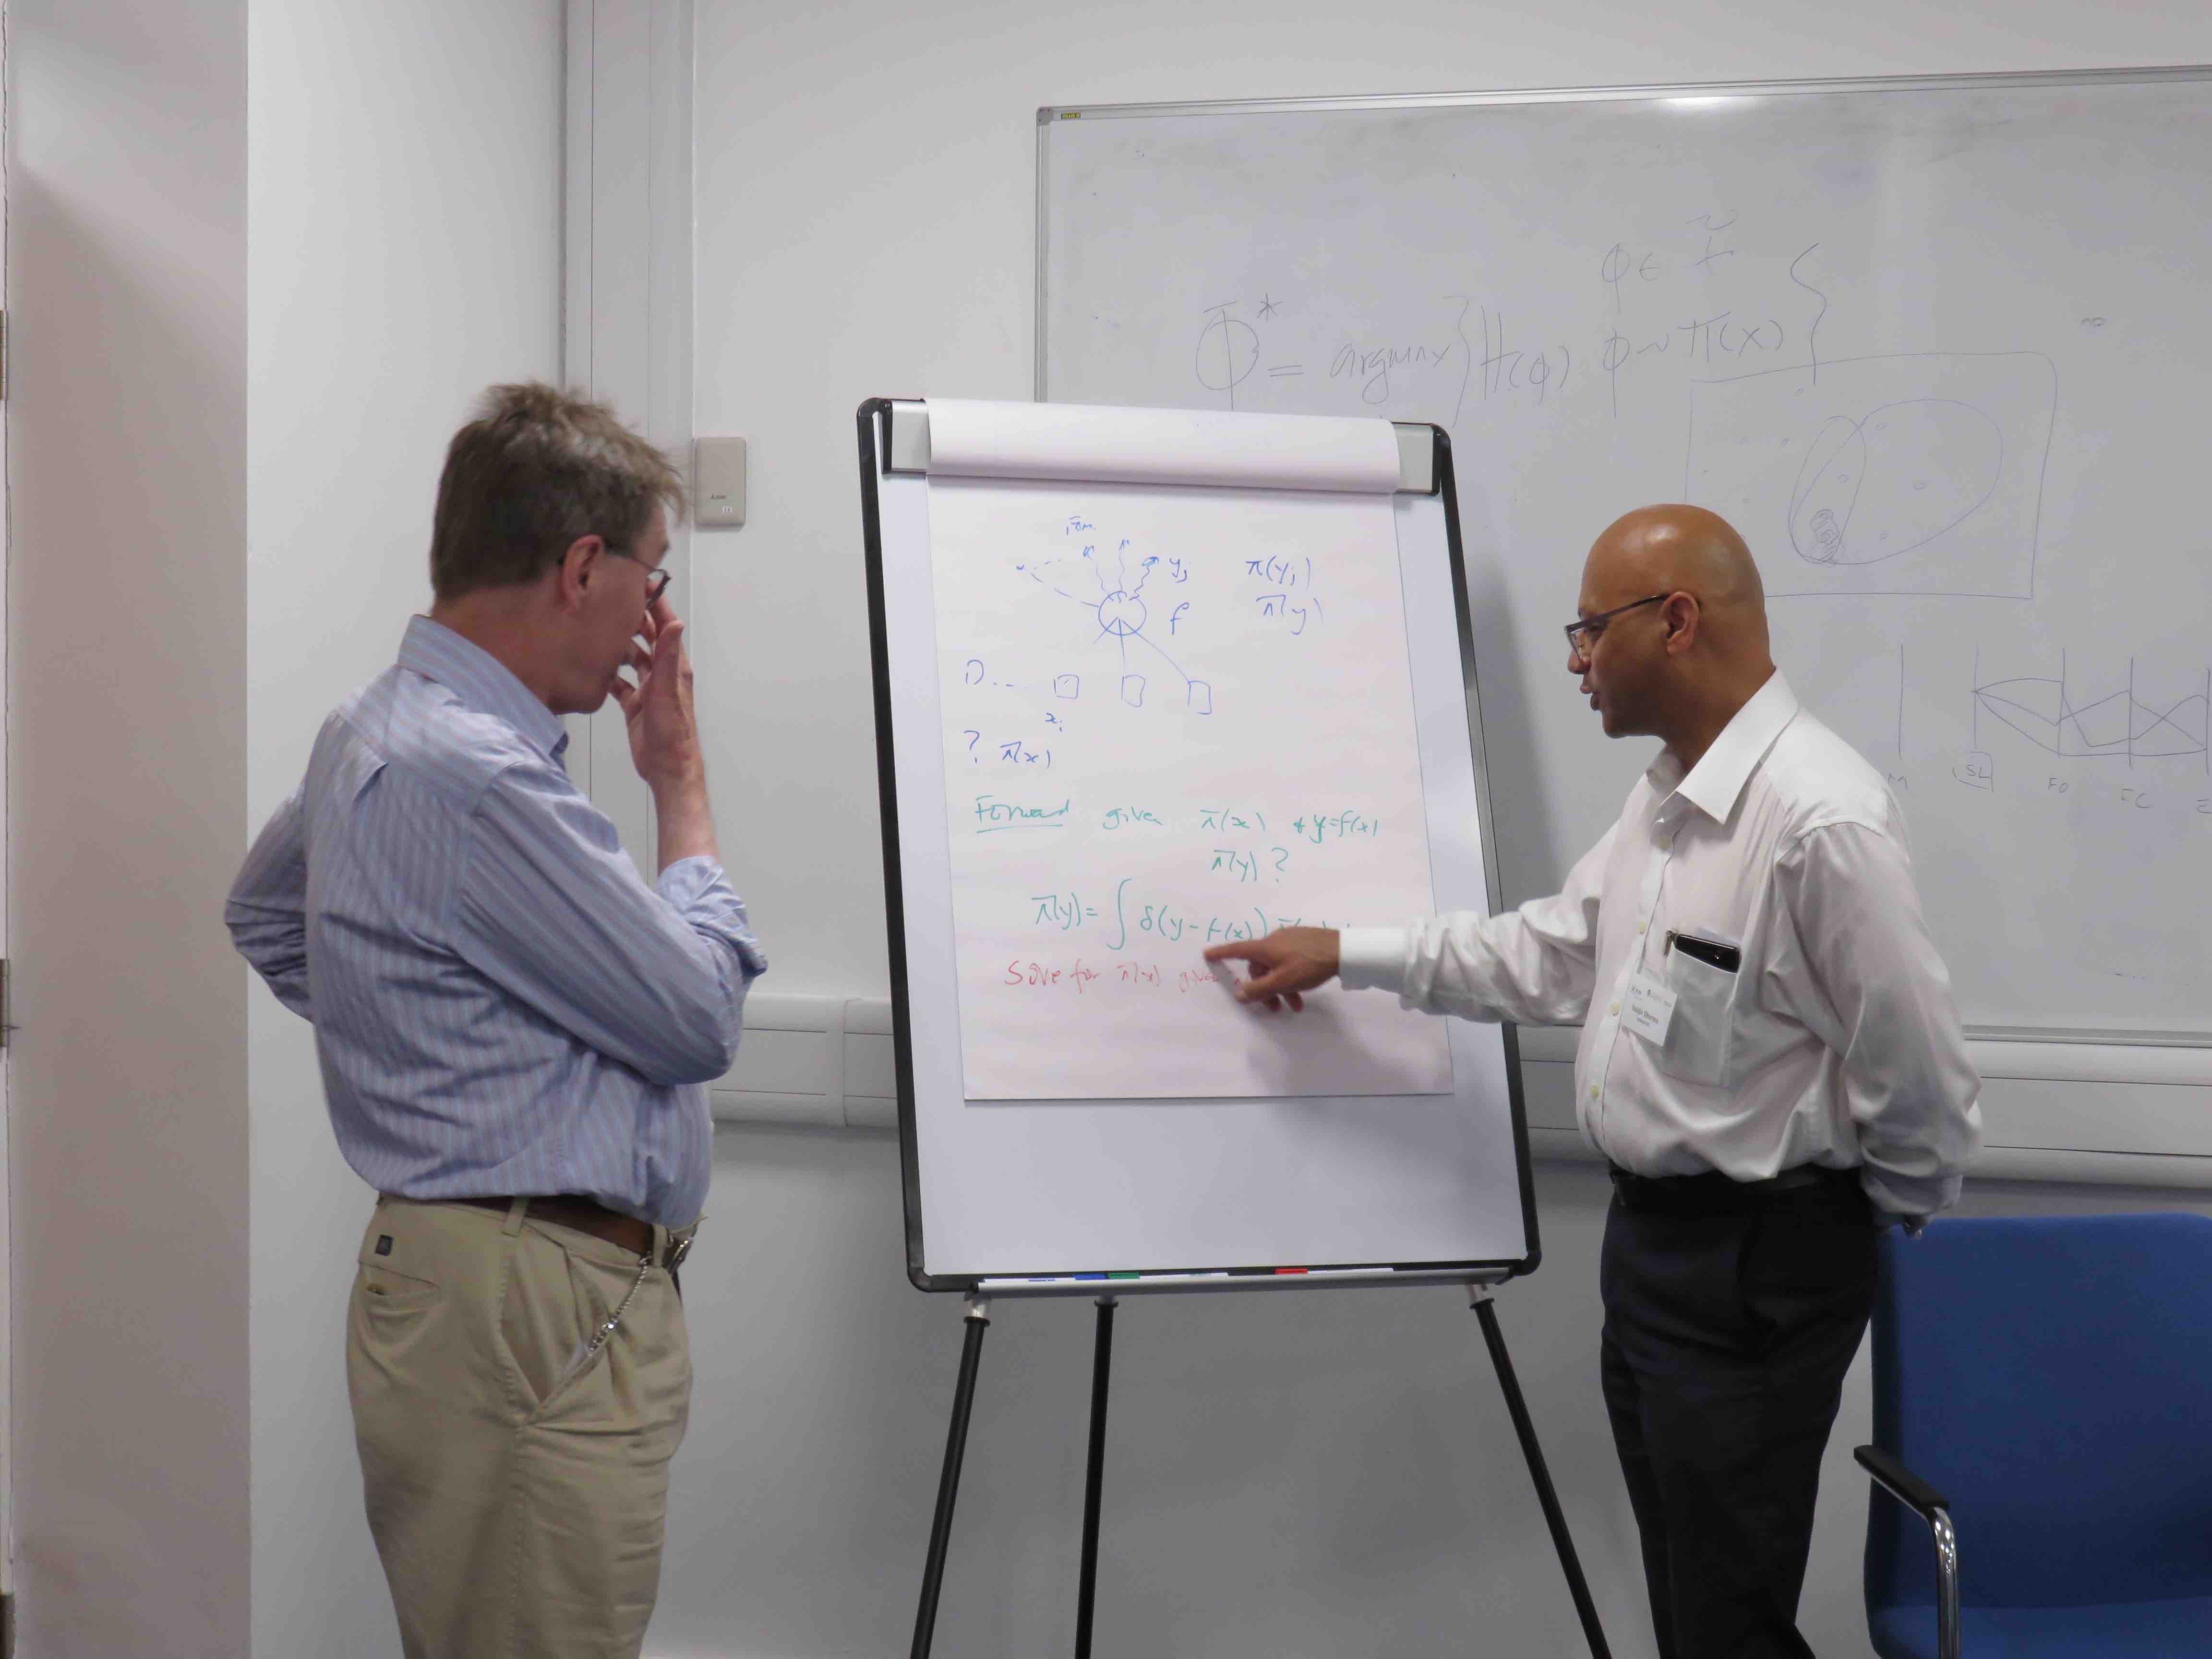 φ ∈ F̃
Φ* = argmax { H(φ) φ ~ π(x) }
SL FO FC
y_j π(y_j)
f π(y)
D
x_i
? π(x)
Forward given π(x) & y=f(x)
π(y) ?
π(y) = ∫ δ(y-f(x))
Solve for π(x) given